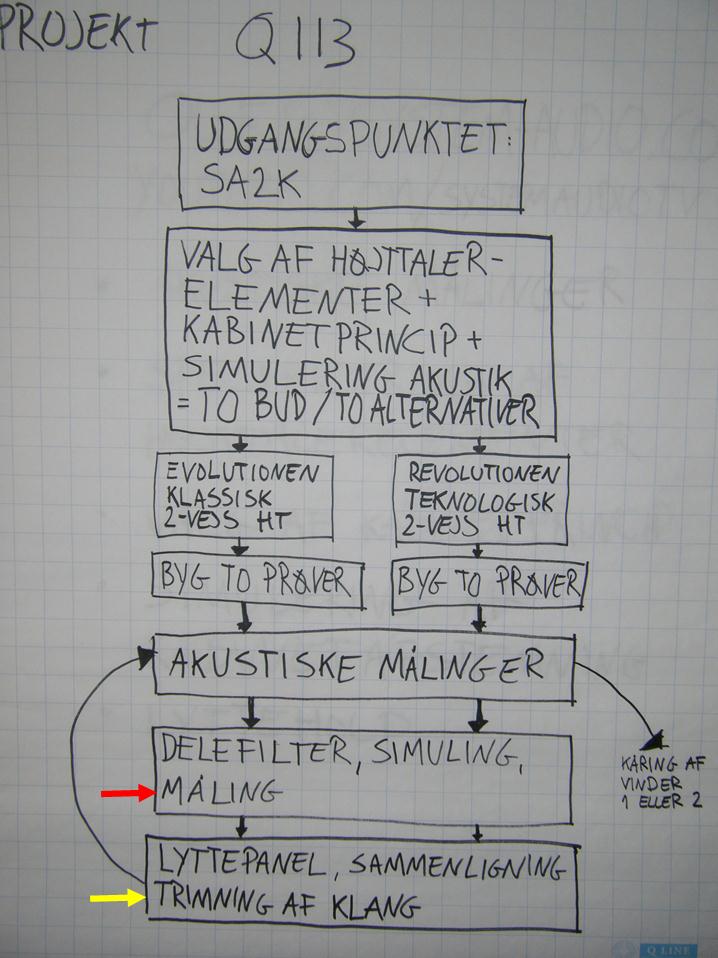 PROJEKT Q113
UDGANGSPUNKTET:
SA2K
VALG AF HØJTTALER-
ELEMENTER +
KABINETPRINCIP +
SIMULERING AKUSTIK
= TO BUD / TO ALTERNATIVER
EVOLUTIONEN
KLASSISK
2-VEJS HT
REVOLUTIONEN
TEKNOLOGISK
2-VEJS HT
BYG TO PRØVER
BYG TO PRØVER
AKUSTISKE MÅLINGER
DELEFILTER, SIMULING,
MÅLING
KÅRING AF
VINDER
1 ELLER 2
LYTTEPANEL, SAMMENLIGNING
TRIMNING AF KLANG
Q LINE